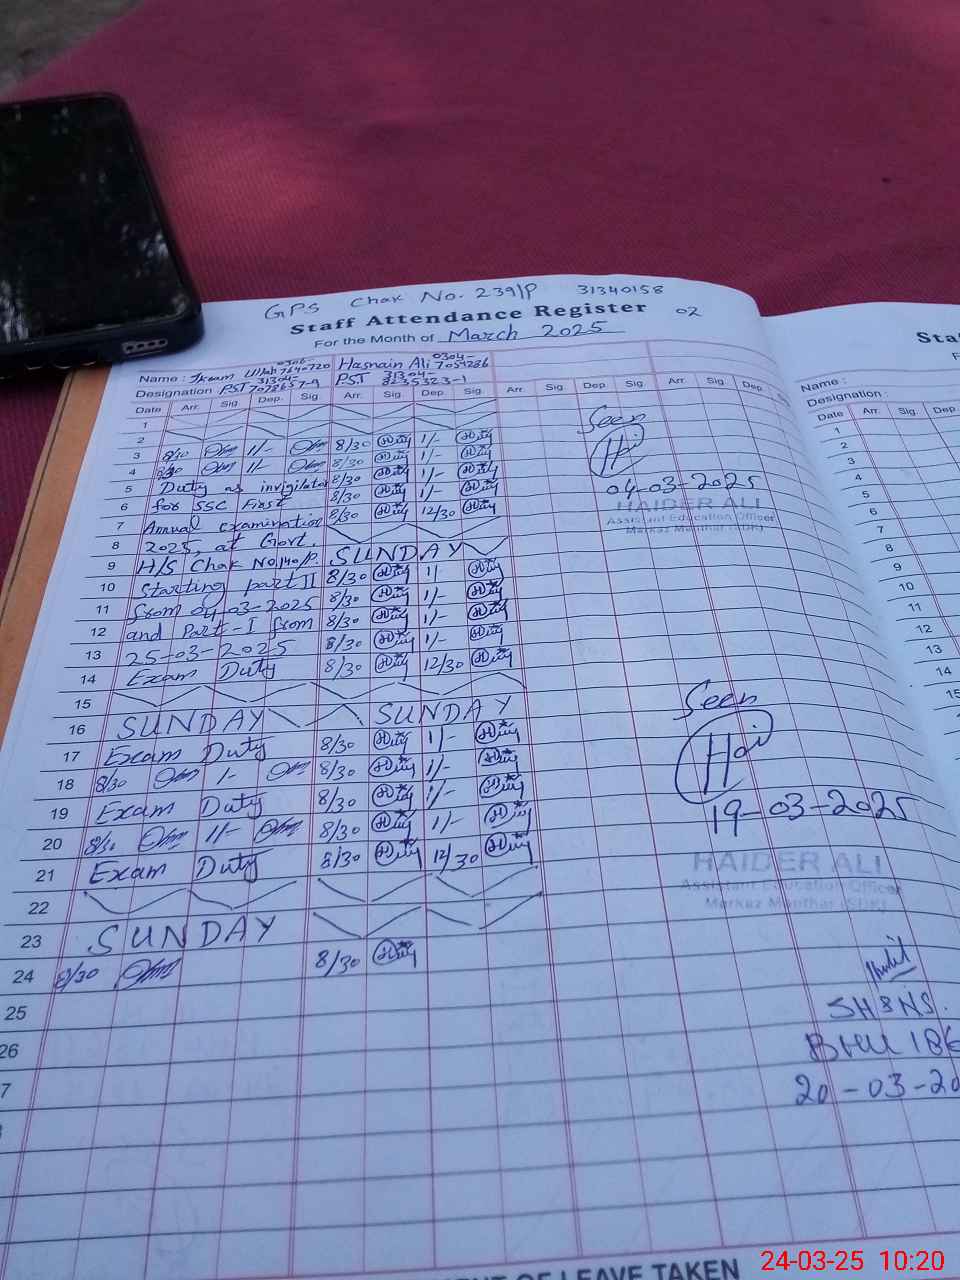 GPS Chak No. 239/P 31340158
Staff Attendance Register 02
For the Month of March 2025
Name : Ikram Ullah Hasnain Ali 0304-7054286
Designation PST PST 31304-
Date Arr. Sig. Dep. Sig. Arr. Sig. Dep. Sig. Arr. Sig. Dep. Sig. Arr. Sig. Dep.
1
2
3 8/30 1/- 8/30 1/-
4 8/30 1/- 8/30 1/-
5 Duty as invigilator 8/30 1/-
6 for SSC First 8/30 1/-
7 Annual examination 8/30 12/30
8 2025, at Govt.
9 H/S Chak No. 140/P. SUNDAY
10 Starting part II 8/30 1/-
11 from 04-03-2025 8/30 1/-
12 and Part-I from 8/30 1/-
13 25-03-2025 8/30 1/-
14 Exam Duty 8/30 12/30
15
16 SUNDAY SUNDAY
17 Exam Duty 8/30 1/-
18 8/30 1/- 8/30 1/-
19 Exam Duty 8/30 1/-
20 8/30 1/- 8/30 1/-
21 Exam Duty 8/30 12/30
22
23 SUNDAY
24 8/30 8/30
25
26
7
Seen
04-03-2025
HAIDER ALI
Assistant Education Officer
Markaz Manthar (SDK)
Seen
19-03-2025
HAIDER ALI
Assistant Education Officer
Markaz Manthar (SDK)
SH&NS.
BHU 186
20-03-20
Sta
F
Name :
Designation :
Date Arr. Sig. Dep.
1
2
3
4
5
6
7
8
9
10
11
12
13
14
15
OF LEAVE TAKEN
24-03-25 10:20